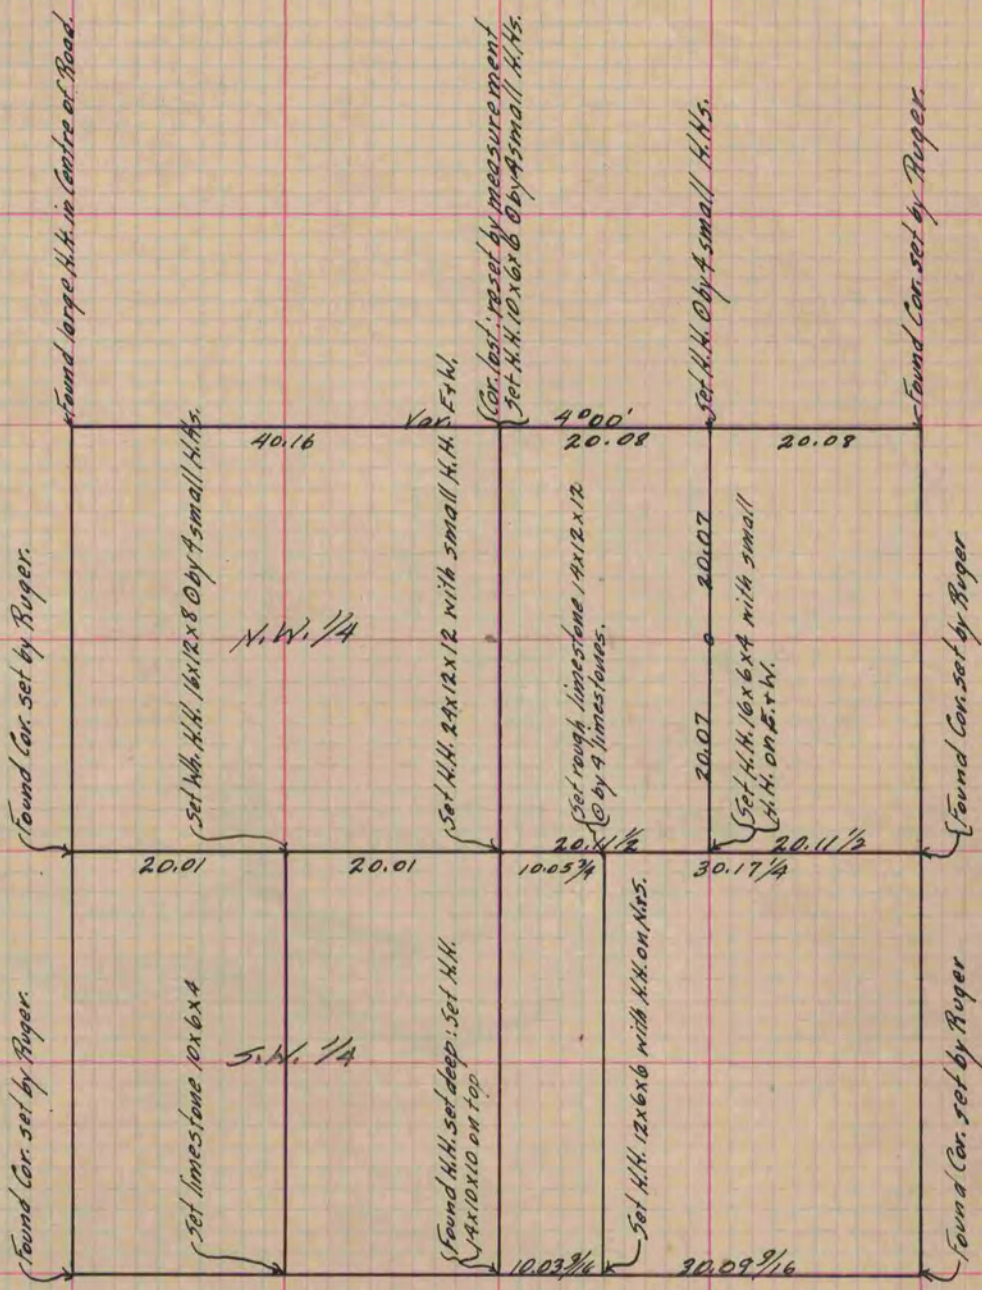 Found large H.H. in Centre of Road.
{Cor. lost: reset by measurement
Set H.H. 10x6x6 0 by 4 small H.Hs.
Set H.H. 0 by 4 small H.Hs.
Found Cor. set by Ruger.
40.16
Var. E+W.
4°00'
20.08
20.08
Found Cor. set by Ruger.
Set Wh. H.H. 16x12x8 0 by 4 small H.Hs.
N.W. 1/4
Set H.H. 24x12x12 with small H.H.
{Set rough limestone 14x12x12
0 by 4 limestones.
20.07
0
20.07
{Set H.H. 16x6x4 with small
H.H. on E.+W.
{Found Cor. set by Ruger
20.11 1/2
20.11 1/2
20.01
20.01
10.05 3/4
30.17 1/4
Found Cor. set by Ruger.
Set limestone 10x6x4
S.W. 1/4
{Found H.H. set deep: Set H.H.
14x10x10 on top
Set H.H. 12x6x6 with H.H. on N.+S.
Found Cor. set by Ruger
10.03 9/16
30.09 9/16